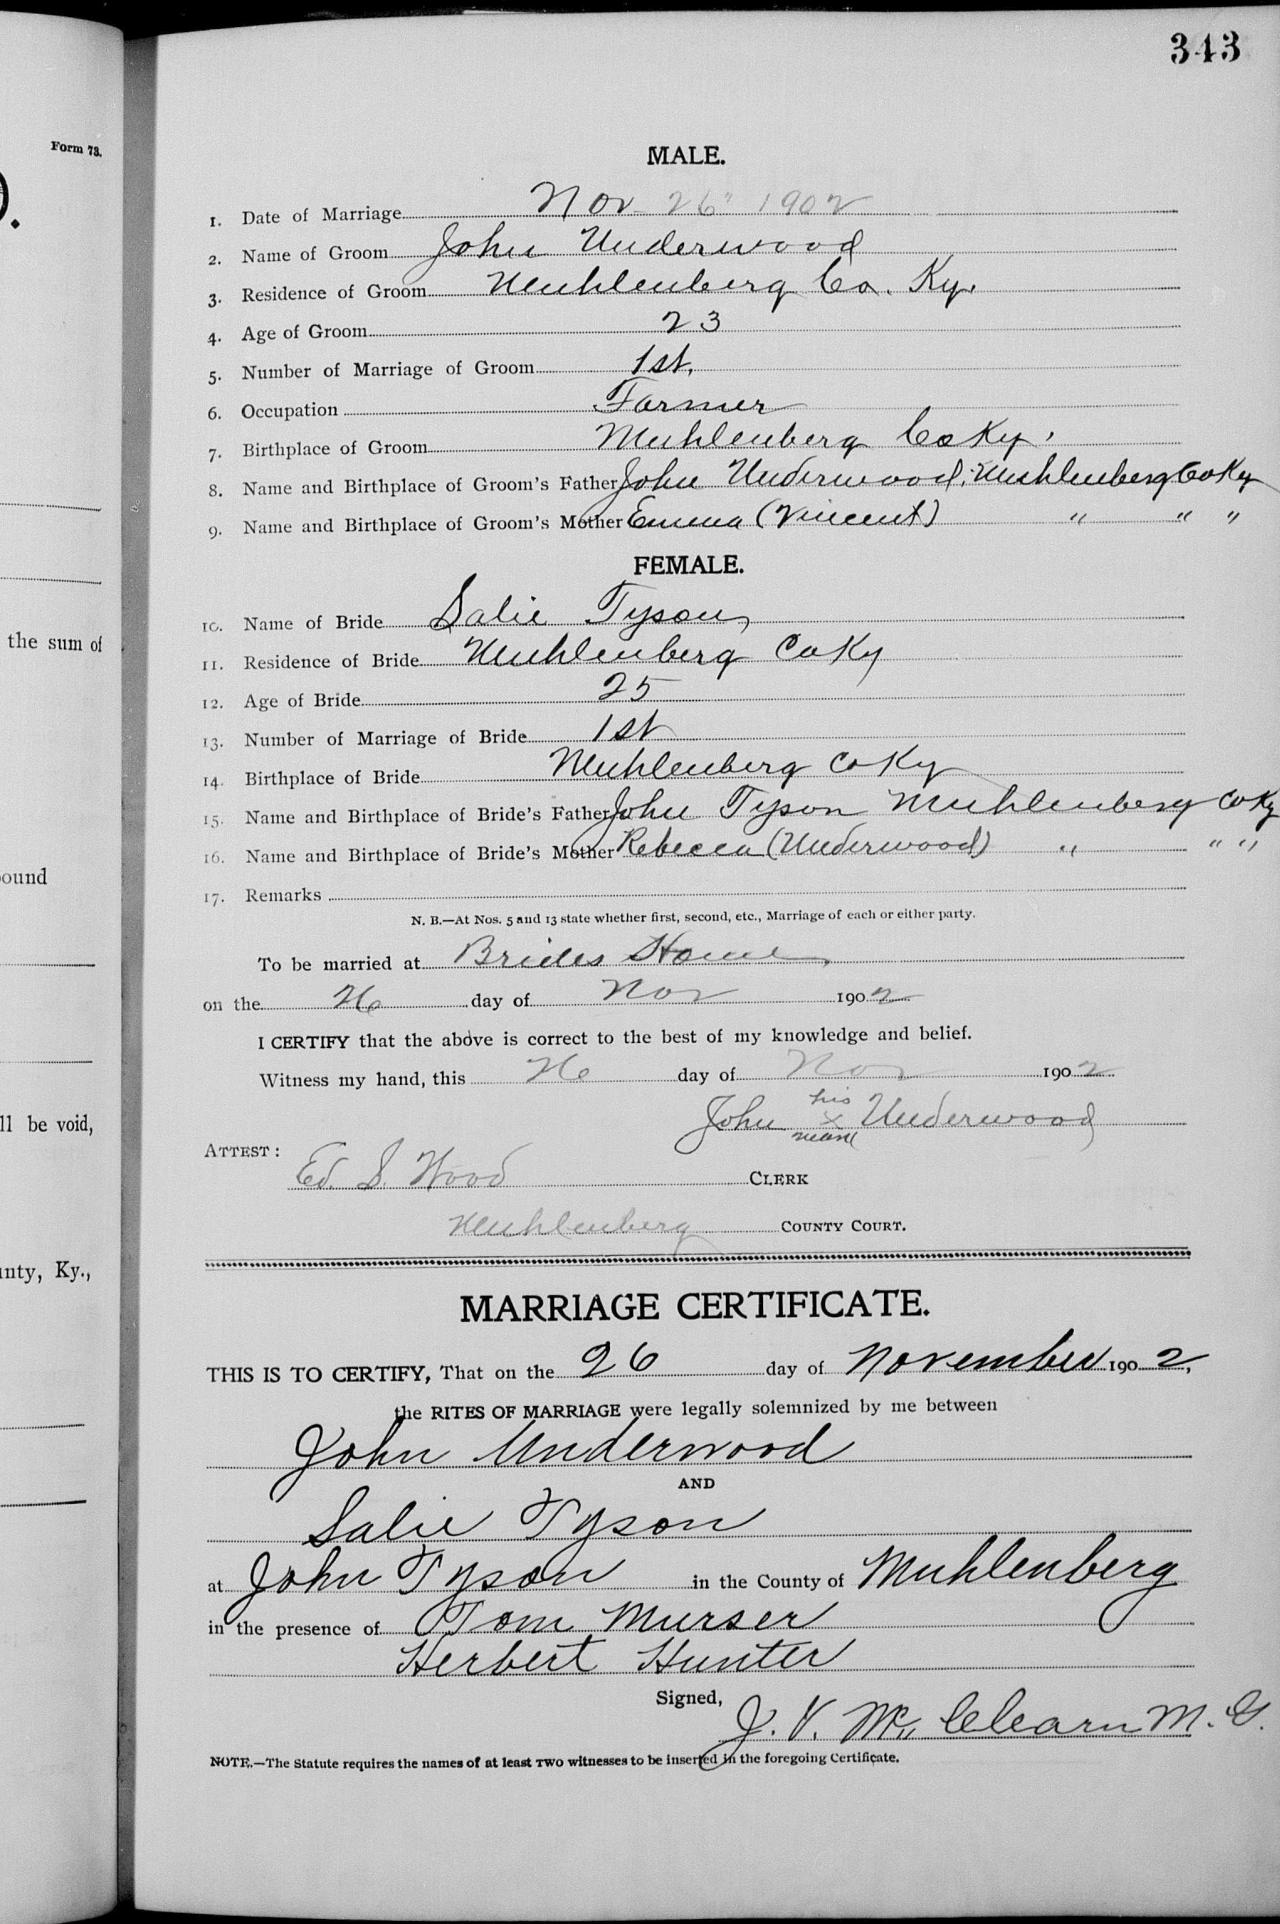 343
Form 73.
MALE.
1. Date of Marriage Nov 26" 1902
2. Name of Groom John Underwood
3. Residence of Groom Muhlenberg Co. Ky.
4. Age of Groom 23
5. Number of Marriage of Groom 1st.
6. Occupation Farmer
7. Birthplace of Groom Muhlenberg Co Ky.
8. Name and Birthplace of Groom's Father John Underwood, Muhlenberg Co Ky
9. Name and Birthplace of Groom's Mother Emma (Vincent) " " "
FEMALE.
10. Name of Bride Salie Tyson
11. Residence of Bride Muhlenberg Co Ky
12. Age of Bride 25
13. Number of Marriage of Bride 1st
14. Birthplace of Bride Muhlenberg Co Ky
15. Name and Birthplace of Bride's Father John Tyson Muhlenberg Co Ky
16. Name and Birthplace of Bride's Mother Rebecca (Underwood) " " "
17. Remarks
N. B.—At Nos. 5 and 13 state whether first, second, etc., Marriage of each or either party.
To be married at Brides Home
on the 26 day of Nov 1902
I CERTIFY that the above is correct to the best of my knowledge and belief.
Witness my hand, this 26 day of Nov 1902
his
John x Underwood
mark
ATTEST:
Ed. S. Wood CLERK
Muhlenberg COUNTY COURT.
MARRIAGE CERTIFICATE.
THIS IS TO CERTIFY, That on the 26 day of November 1902,
the RITES OF MARRIAGE were legally solemnized by me between
John Underwood
AND
Salie Tyson
at John Tyson in the County of Muhlenberg
in the presence of Tom Murser
Herbert Hunter
Signed, J. V. Mc Clearn M. G.
NOTE.—The Statute requires the names of at least TWO witnesses to be inserted in the foregoing Certificate.
the sum of
ound
ll be void,
unty, Ky.,